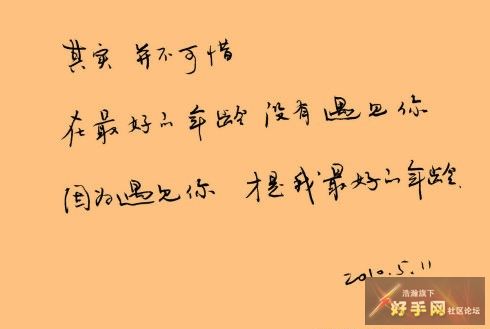 其实 并不可惜
在最好的年龄没有遇见你
因为遇见你 才是我最好的年龄
2010.5.11
浩瀚旗下
好手网社区论坛